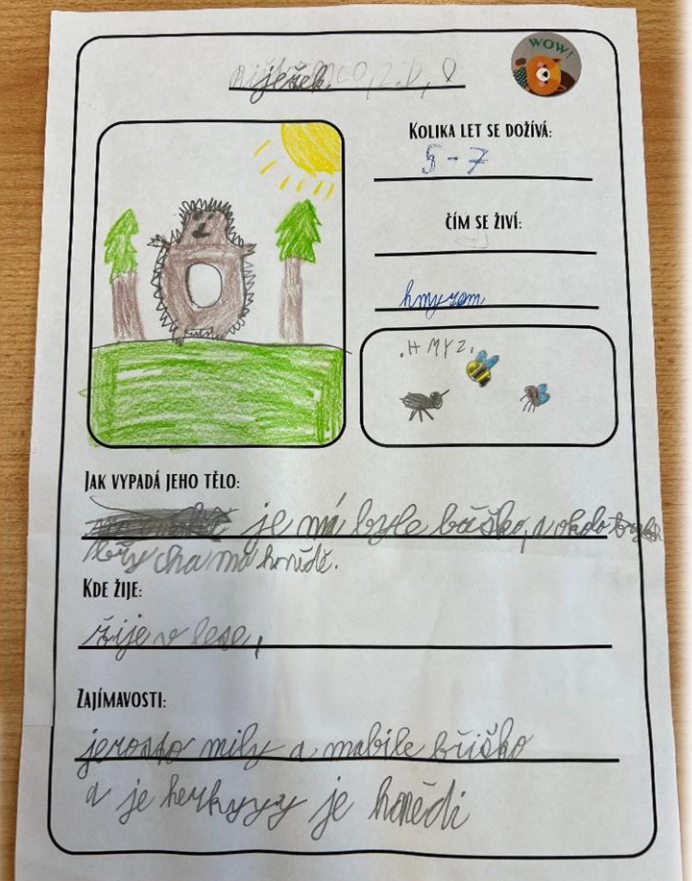 ježek
WOW!
KOLIKA LET SE DOŽÍVÁ:
5 - 7
ČÍM SE ŽIVÍ:
hmyzem
.HMYZ.
JAK VYPADÁ JEHO TĚLO:
je má byle bůško, a okolo
cha má honědě.
KDE ŽIJE:
žije v lese,
ZAJÍMAVOSTI:
jerosto mily a mabile bříško
a je herkyyyy je honědi